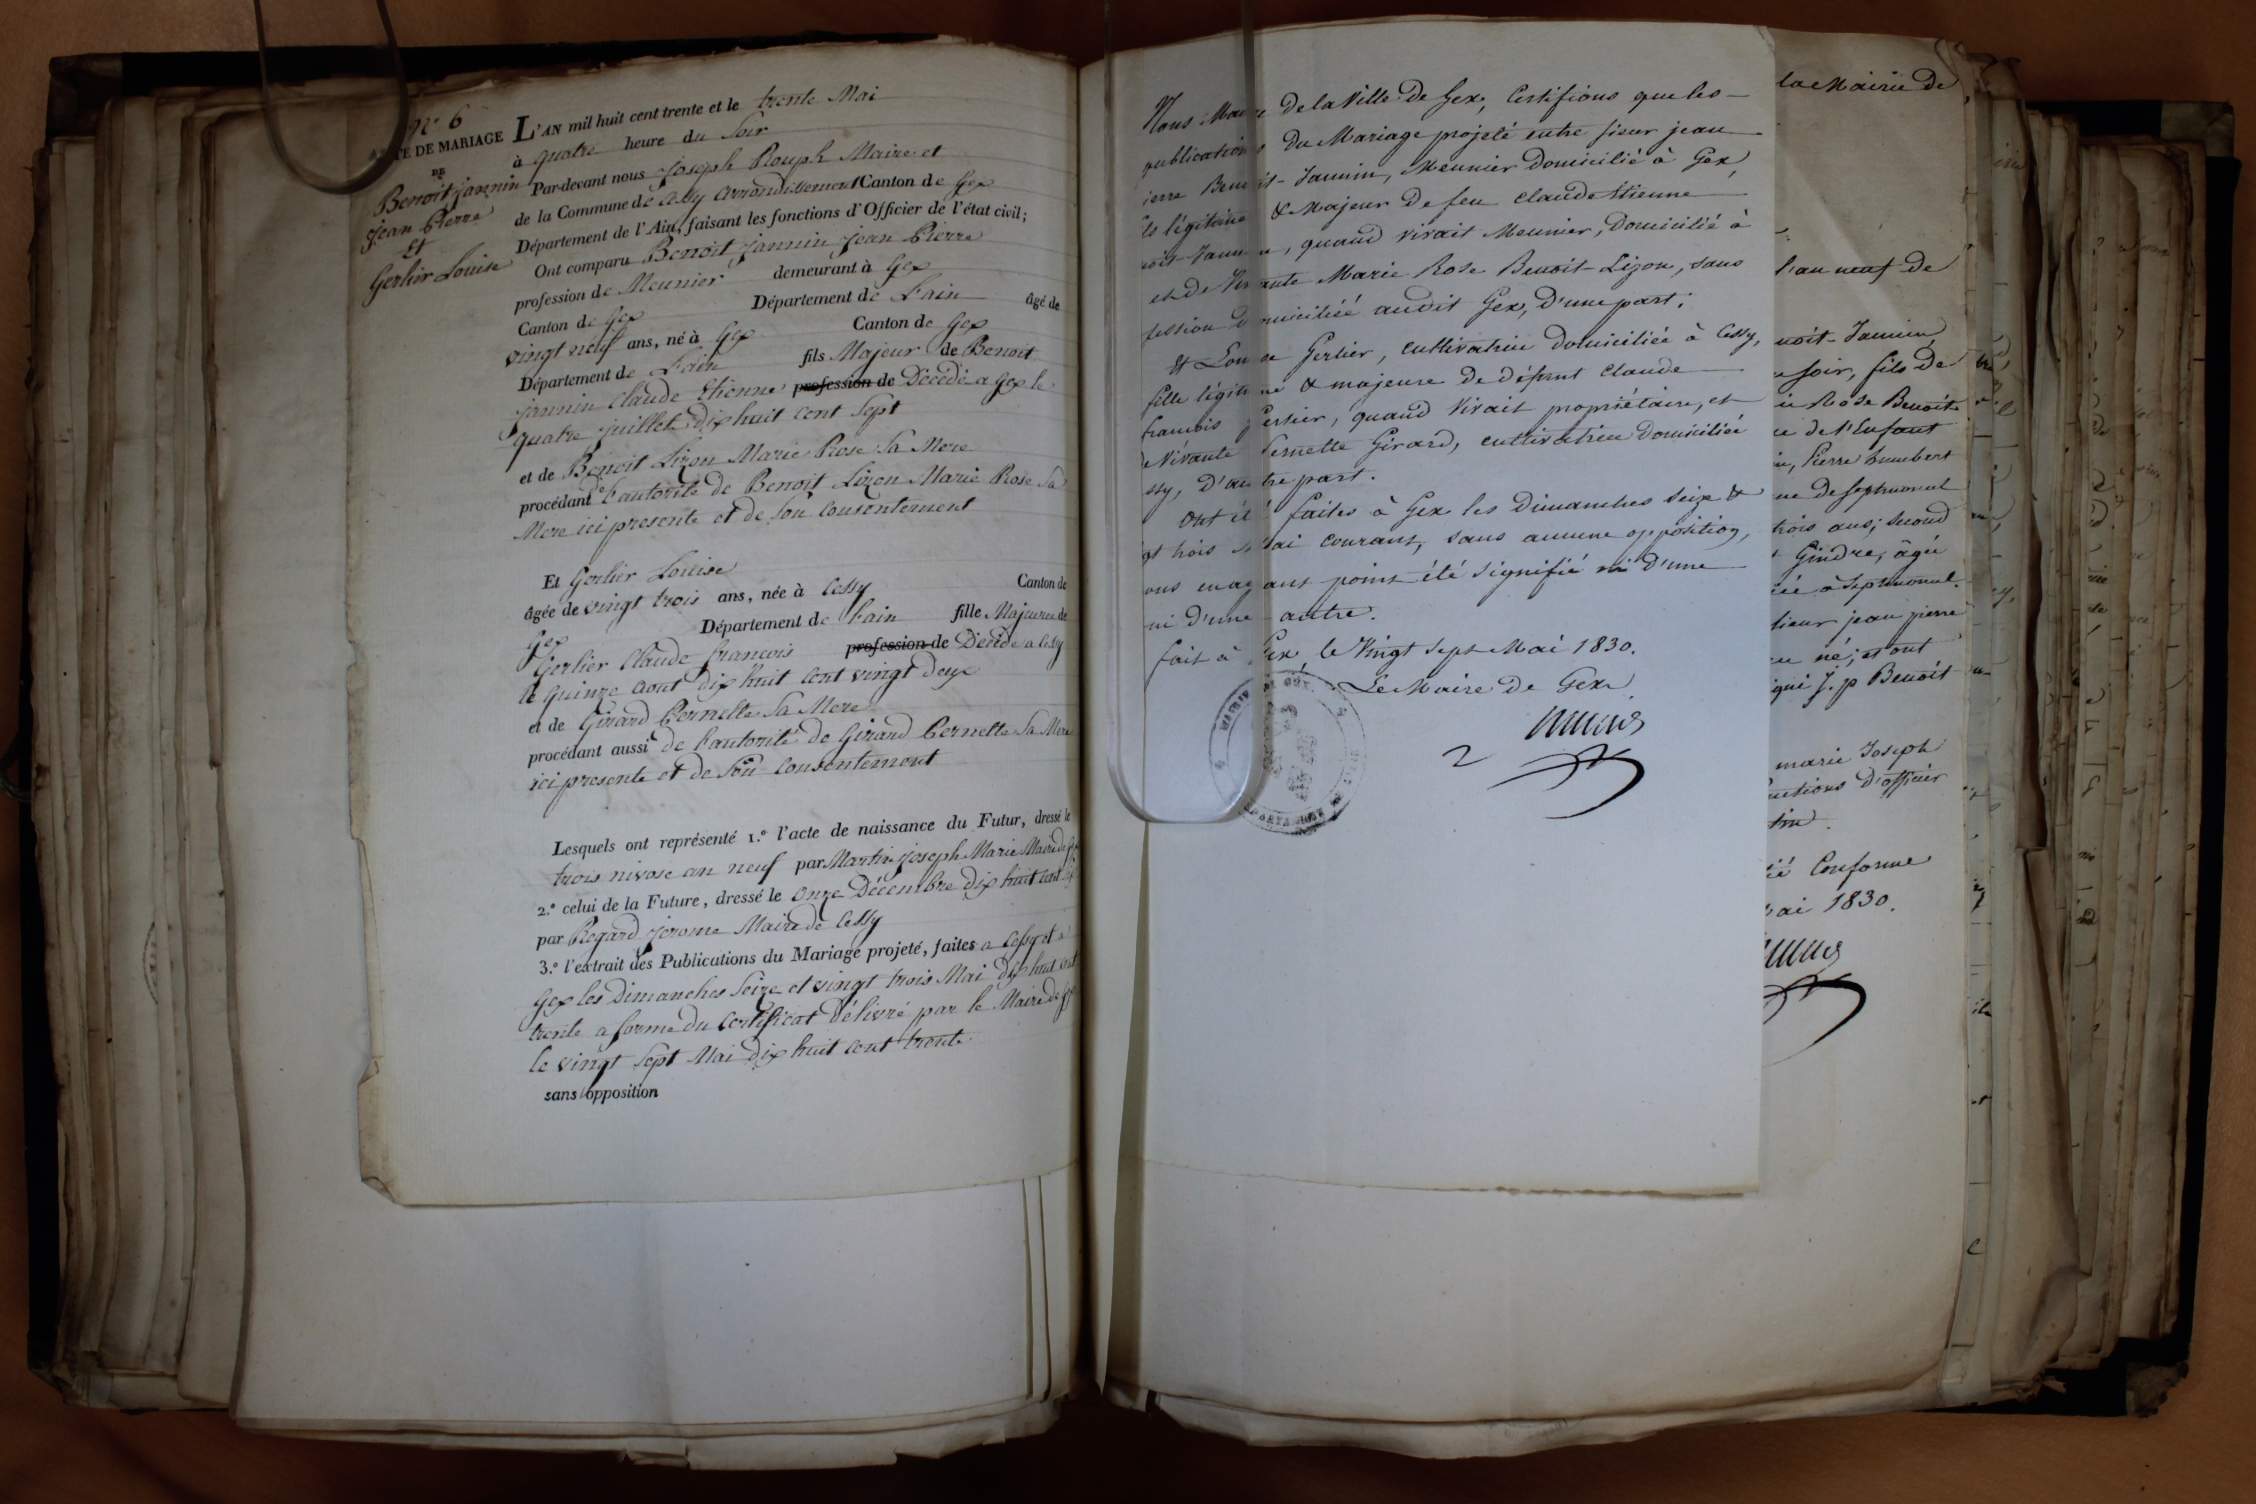 N° 6
ACTE DE MARIAGE
DE
Benoit jannin
jean Pierre
Et
Gerlier Louise
L'AN mil huit cent trente et le trente Mai
à quatre heure du Soir
Par-devant nous Joseph Rouph Maire et
de la Commune de Cessy arrondissement Canton de Gex
Département de l'Ain, faisant les fonctions d'Officier de l'état civil;
Ont comparu Benoit jannin jean Pierre
profession de Meunier demeurant à Gex
Canton de Gex Département de l'ain âgé de
vingt neuf ans, né à Gex Canton de Gex
Département de l'ain fils Majeur de Benoit
jannin Claude Etienne profession de Décédé a Gex le
quatre juillet dix huit cent Sept
et de Benoit Lizon Marie Rose Sa Mere
procédant de l'autorité de Benoit Lizon Marie Rose Sa
Mere ici presente et de son Consentement
Et Gerlier Louise
âgée de vingt trois ans, née à Cessy Canton de
Gex Département de l'ain fille Majeure de
Gerlier Claude francois profession de Décédé a Cessy
le Quinze aout dix huit cent vingt deux
et de Girard Pernette Sa Mere
procédant aussi de l'autorité de Girard Pernette Sa Mere
ici presente et de Son Consentement
Lesquels ont représenté 1.° l'acte de naissance du Futur, dressé le
trois nivose an neuf par Martin Joseph Marie Maire de
2.° celui de la Future, dressé le onze Décembre dix huit cent
par Regard jerome Maire de Cessy
3.° l'extrait des Publications du Mariage projeté, faites a Cessy et a
Gex les Dimanches Seize et vingt trois Mai dix huit cent
trente a forme du Certificat Délivré par le Maire de
le vingt Sept Mai dix huit cent trente
sans opposition
Nous Maire De la Ville De Gex, Certifions que les
publications Du Mariage projeté entre sieur jean
ierre Benoit-Jannin, Meunier Domicilié à Gex,
ls légitime & Majeur De feu Claude Etienne
noit-Jannin, quand vivait Meunier, Domicilié à
et De Vivante Marie Rose Benoit-Lizon, sans
fession Domiciliée audit Gex, D'une part;
Et Louise Gerlier, cultivatrice domiciliée à Cessy,
fille légitime & majeure De Défunt Claude
francois Gerlier, quand Vivait propriétaire, et
De Vivante Pernette Girard, cultivatrice Domiciliée
ssy, D'autre part.
Ont été faites à Gex les Dimanches Seize &
gt trois Mai courant, sans aucune opposition,
ous en ayant point été signifié ni D'une
ni D'une autre.
fait à Gex, le Vingt Sept Mai 1830.
Le Maire De Gex
la Mairie De
l'an neuf De
noit-Jannin,
soir, fils De
Rose Benoit
De l'Enfant
Pierre humbert
De Septmoncel
trois ans; Second
Gindre, âgée
à Septmoncel.
sieur jean pierre
né; et ont
igné J. p Benoit
marie Joseph
D'officier
Conforme
ai 1830.